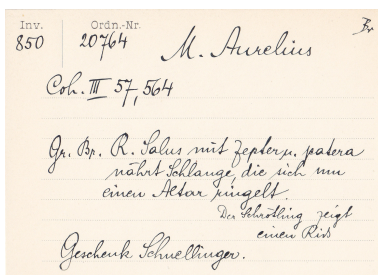 Inv. Ordn.-Nr. Br
850 20764
M. Aurelius
Coh. III 57, 564
Gr. Br. R. Salus mit Zepter u. patera
nährt Schlange, die sich um
einen Altar ringelt.
Der Schrötling zeigt
einen Riss
Geschenk Schnellinger.